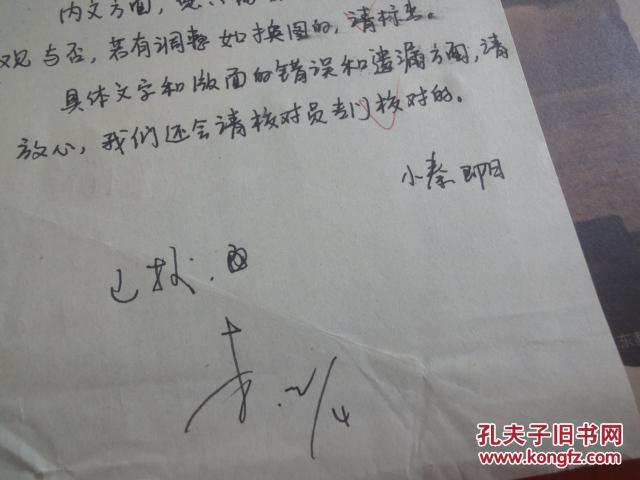 内文方面，
观与否，若有调整如换图的，请标出。
具体文字和版面的错误和遗漏方面，请
放心，我们还会请核对员专门核对的。
小秦 即日
已校
孔夫子旧书网
www.kongfz.com